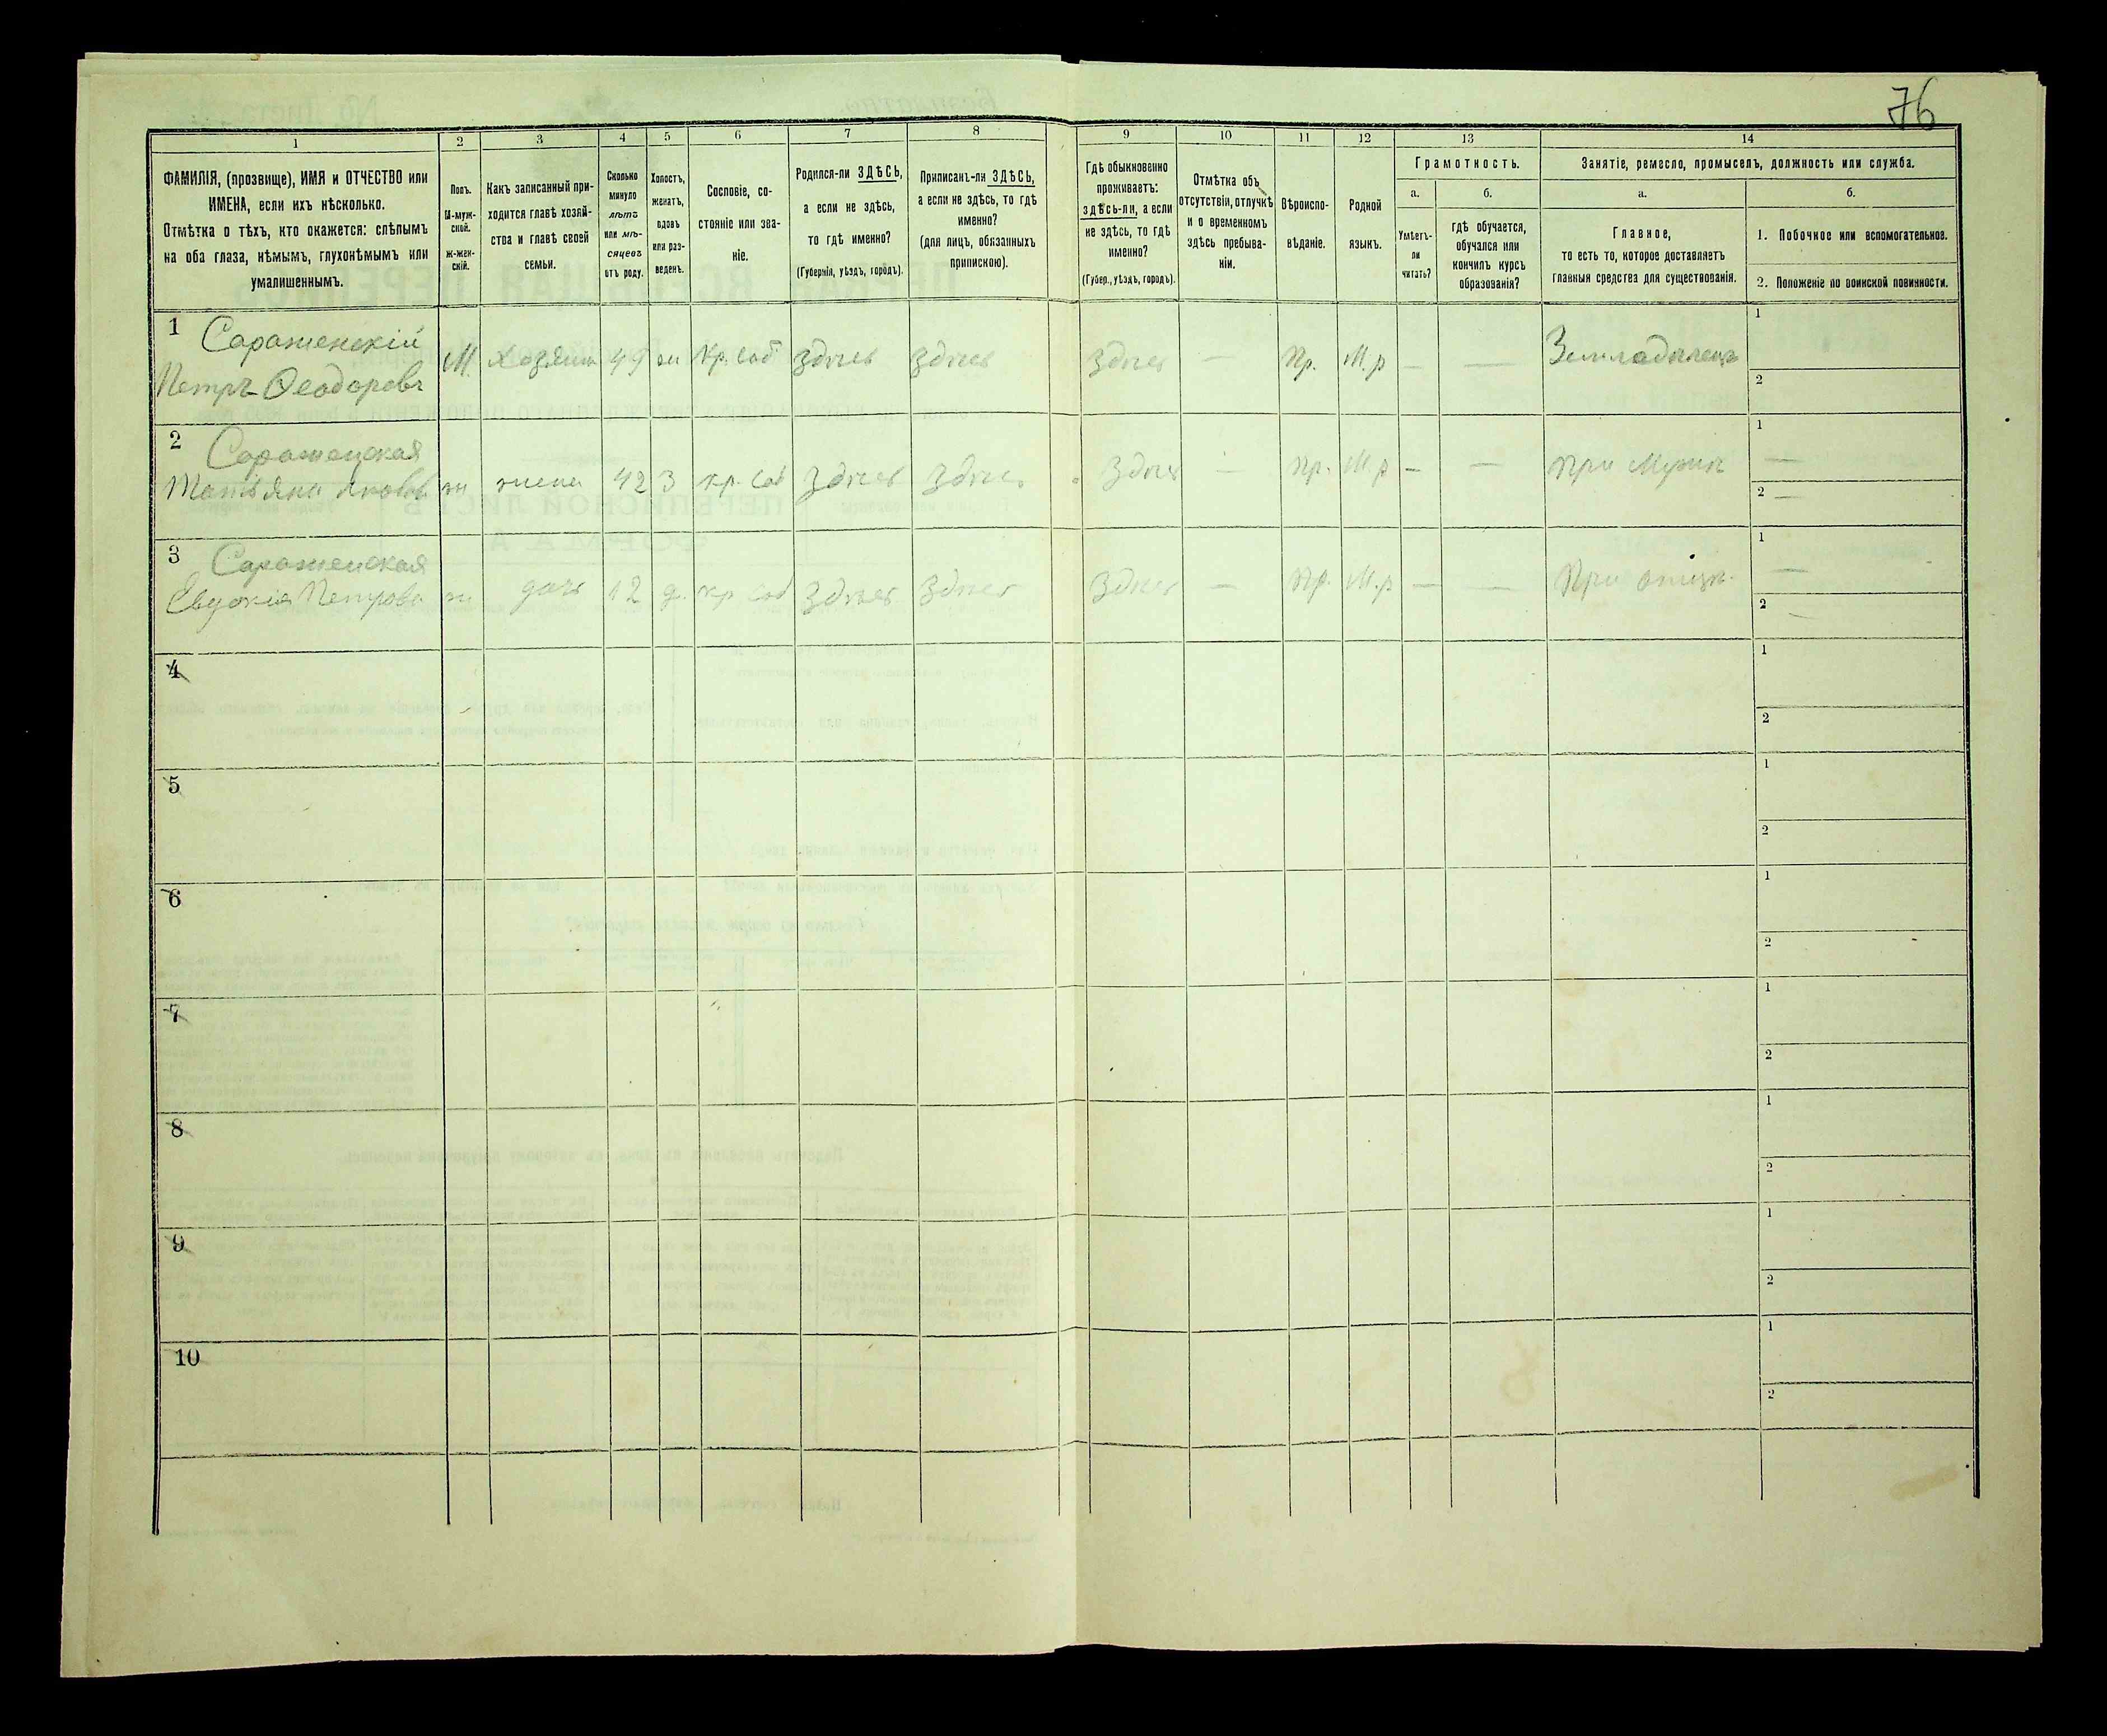 76
1
2
3
4
5
6
7
8
9
10
11
12
13
14
ФАМИЛІЯ, (прозвище), ИМЯ и ОТЧЕСТВО или
ИМЕНА, если ихъ нѣсколько.
Отмѣтка о тѣхъ, кто окажется: слѣпымъ
на оба глаза, нѣмымъ, глухонѣмымъ или
умалишеннымъ.
Полъ.
М-муж-
ской.
ж-жен-
скій.
Какъ записанный при-
ходится главѣ хозяй-
ства и главѣ своей
семьи.
Сколько
минуло
лѣтъ
или мѣ-
сяцевъ
отъ роду.
Холостъ,
женатъ,
вдовъ
или раз-
веденъ.
Сословіе, со-
стояніе или зва-
ніе.
Родился-ли ЗДѢСЬ,
а если не здѣсь,
то гдѣ именно?
(Губернія, уѣздъ, городъ).
Приписанъ-ли ЗДѢСЬ,
а если не здѣсь, то гдѣ
именно?
(для лицъ, обязанныхъ
припискою).
Гдѣ обыкновенно
проживаетъ:
здѣсь-ли, а если
не здѣсь, то гдѣ
именно?
(Губер., уѣздъ, городъ).
Отмѣтка объ
отсутствіи, отлучкѣ
и о временномъ
здѣсь пребыва-
ніи.
Вѣроиспо-
вѣданіе.
Родной
языкъ.
Грамотность.
а.
Умѣетъ-
ли
читать?
б.
гдѣ обучается,
обучался или
кончилъ курсъ
образованія?
Занятіе, ремесло, промыселъ, должность или служба.
а.
Главное,
то есть то, которое доставляетъ
главныя средства для существованія.
б.
1. Побочное или вспомогательное.
2. Положеніе по воинской повинности.
1
Петръ Ѳеодоровъ
М. Хозяинъ 49 Кр. соб здѣсь здѣсь здѣсь — Пр. М.р — — Земледѣлецъ
1
2
2
Татьяна Яковл ж жена 42 З кр. соб здѣсь здѣсь здѣсь — Пр. М.р — — При мужѣ
1 —
2 —
3
Евдокія Петрова ж дочь 12 д. кр соб здѣсь здѣсь здѣсь — Пр. М.р — — При отцѣ
1 —
2 —
4
1
2
5
1
2
6
1
2
7
1
2
8
1
2
9
1
2
10
1
2